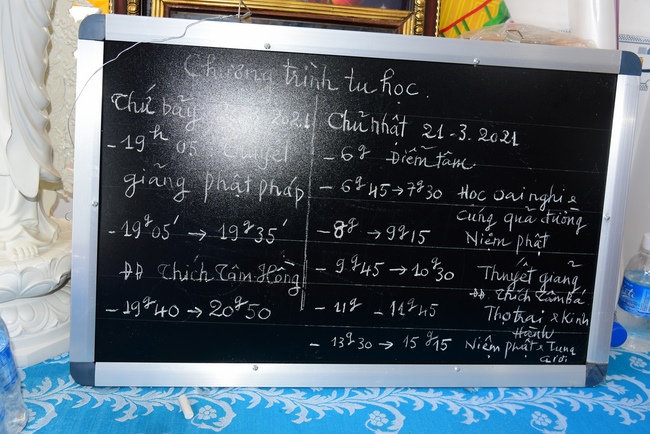 Chương trình tu học.
Thứ bảy 2021
- 19h05 thuyết
giảng phật pháp
- 19g05' → 19g35'
ĐĐ Thích Tâm Hồng
- 19g40 → 20g50
Chủ nhật 21-3.2021
- 6g Điểm tâm
- 6g45 → 7g30 Học oai nghi &
cúng quá đường
- 8g → 9g15 Niệm phật
- 9g45 → 10g30 Thuyết giảng
ĐĐ Thích Tâm
- 11g - 11g45 Thọ trai & Kinh
Hành
- 13g30 → 15g15 Niệm phật & Tụng